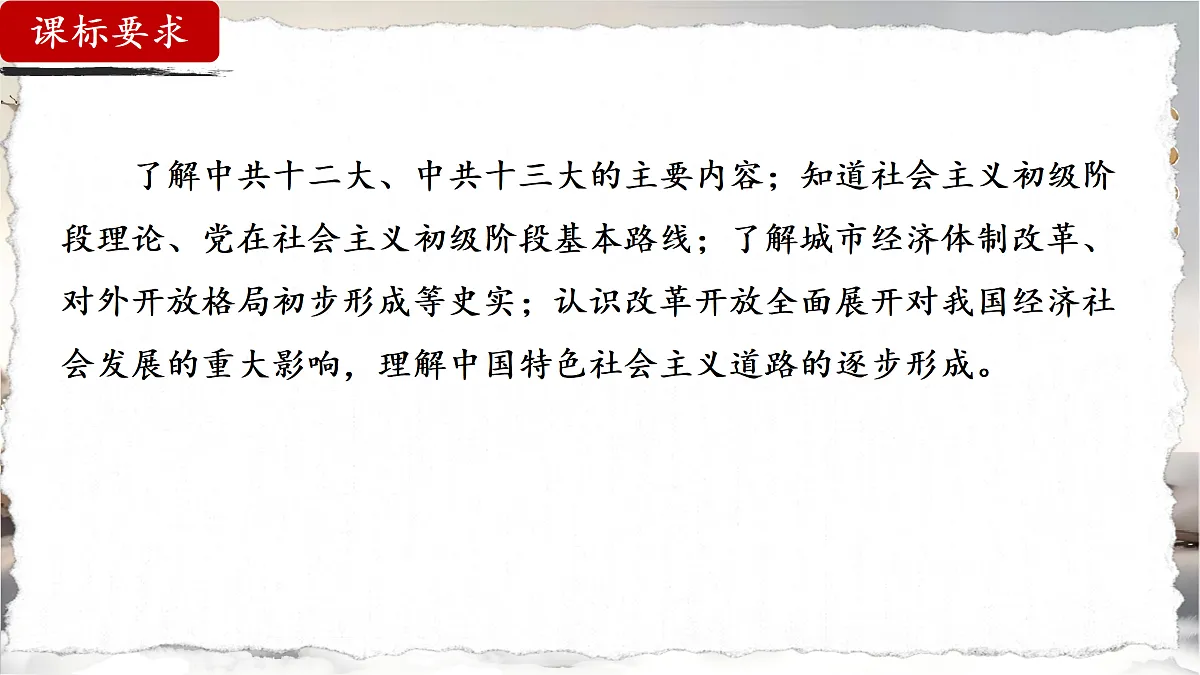 课标要求
了解中共十二大、中共十三大的主要内容；知道社会主义初级阶
段理论、党在社会主义初级阶段基本路线；了解城市经济体制改革、
对外开放格局初步形成等史实；认识改革开放全面展开对我国经济社
会发展的重大影响，理解中国特色社会主义道路的逐步形成。